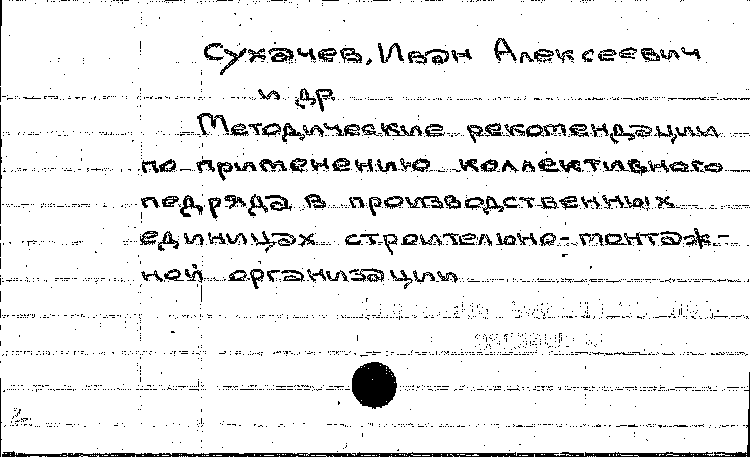 Сухачев, Иван Алексеевич
и др.
Методические рекомендации
по применению коллективного
подряда в производственных
единицах строительно-монтаж-
ной организации